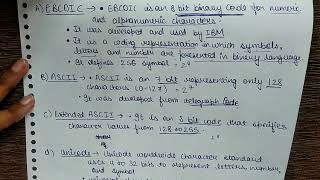 A) EBCDIC → • EBCDIC is an 8 bit binary code for numeric
and alphanumeric characters.
• It was developed and used by IBM
• It is a coding representation in which symbols,
letters and number are presented in binary language
• It defines 256 symbol = 2⁸
B) ASCII → • ASCII is a 7 bit representing only 128
characters (0-127) = 2⁷
• It was developed from telegraph code
C) Extended ASCII → • It is an 8 bit code that specifies
character values from 128 to 255
= 2⁸
d) Unicode → Unicode worldwide character standard
uses 4 to 32 bits to represent letters, number
and symbol